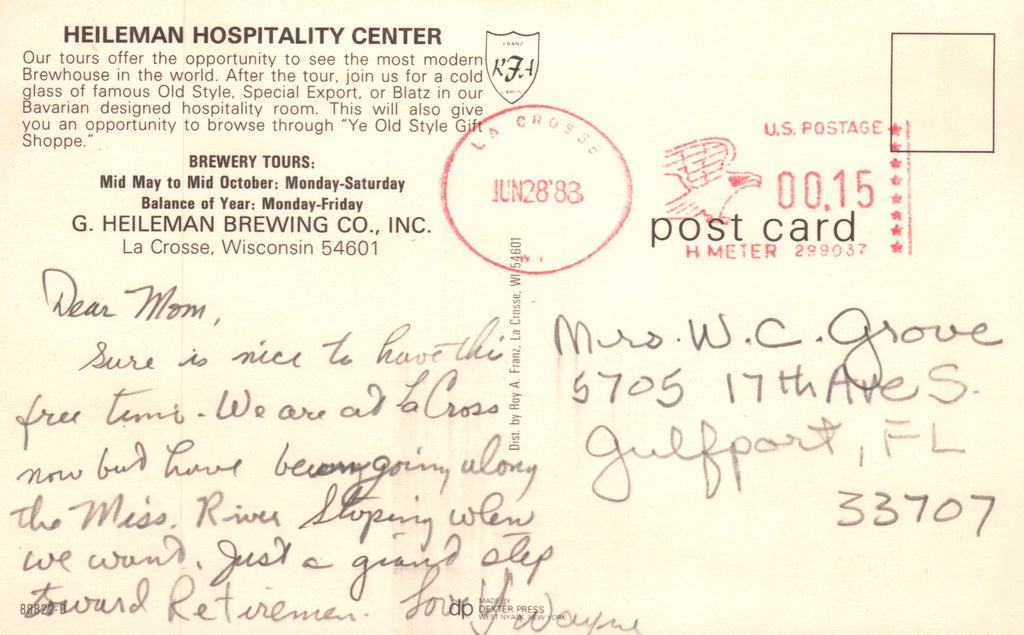 HEILEMAN HOSPITALITY CENTER
Our tours offer the opportunity to see the most modern
Brewhouse in the world. After the tour, join us for a cold
glass of famous Old Style, Special Export, or Blatz in our
Bavarian designed hospitality room. This will also give
you an opportunity to browse through "Ye Old Style Gift
Shoppe."
BREWERY TOURS:
Mid May to Mid October: Monday-Saturday
Balance of Year: Monday-Friday
G. HEILEMAN BREWING CO., INC.
La Crosse, Wisconsin 54601
FRANZ
KFA
LA CROSSE
JUN28'83
WI
U.S. POSTAGE
00.15
post card
H METER 299037
Dist. by Roy A. Franz, La Crosse, WI 54601
Dear Mom,
Sure is nice to have thi
free time. We are at LaCross
now but have been going along
the Miss. River Stoping when
we want. Just a giant step
toward Retiremen. Love
Wayne
Mrs. W. C. Grove
5705 17th Ave S.
Gulfport, FL
33707
dp
MADE BY
DEXTER PRESS
WEST NYACK, NEW YORK